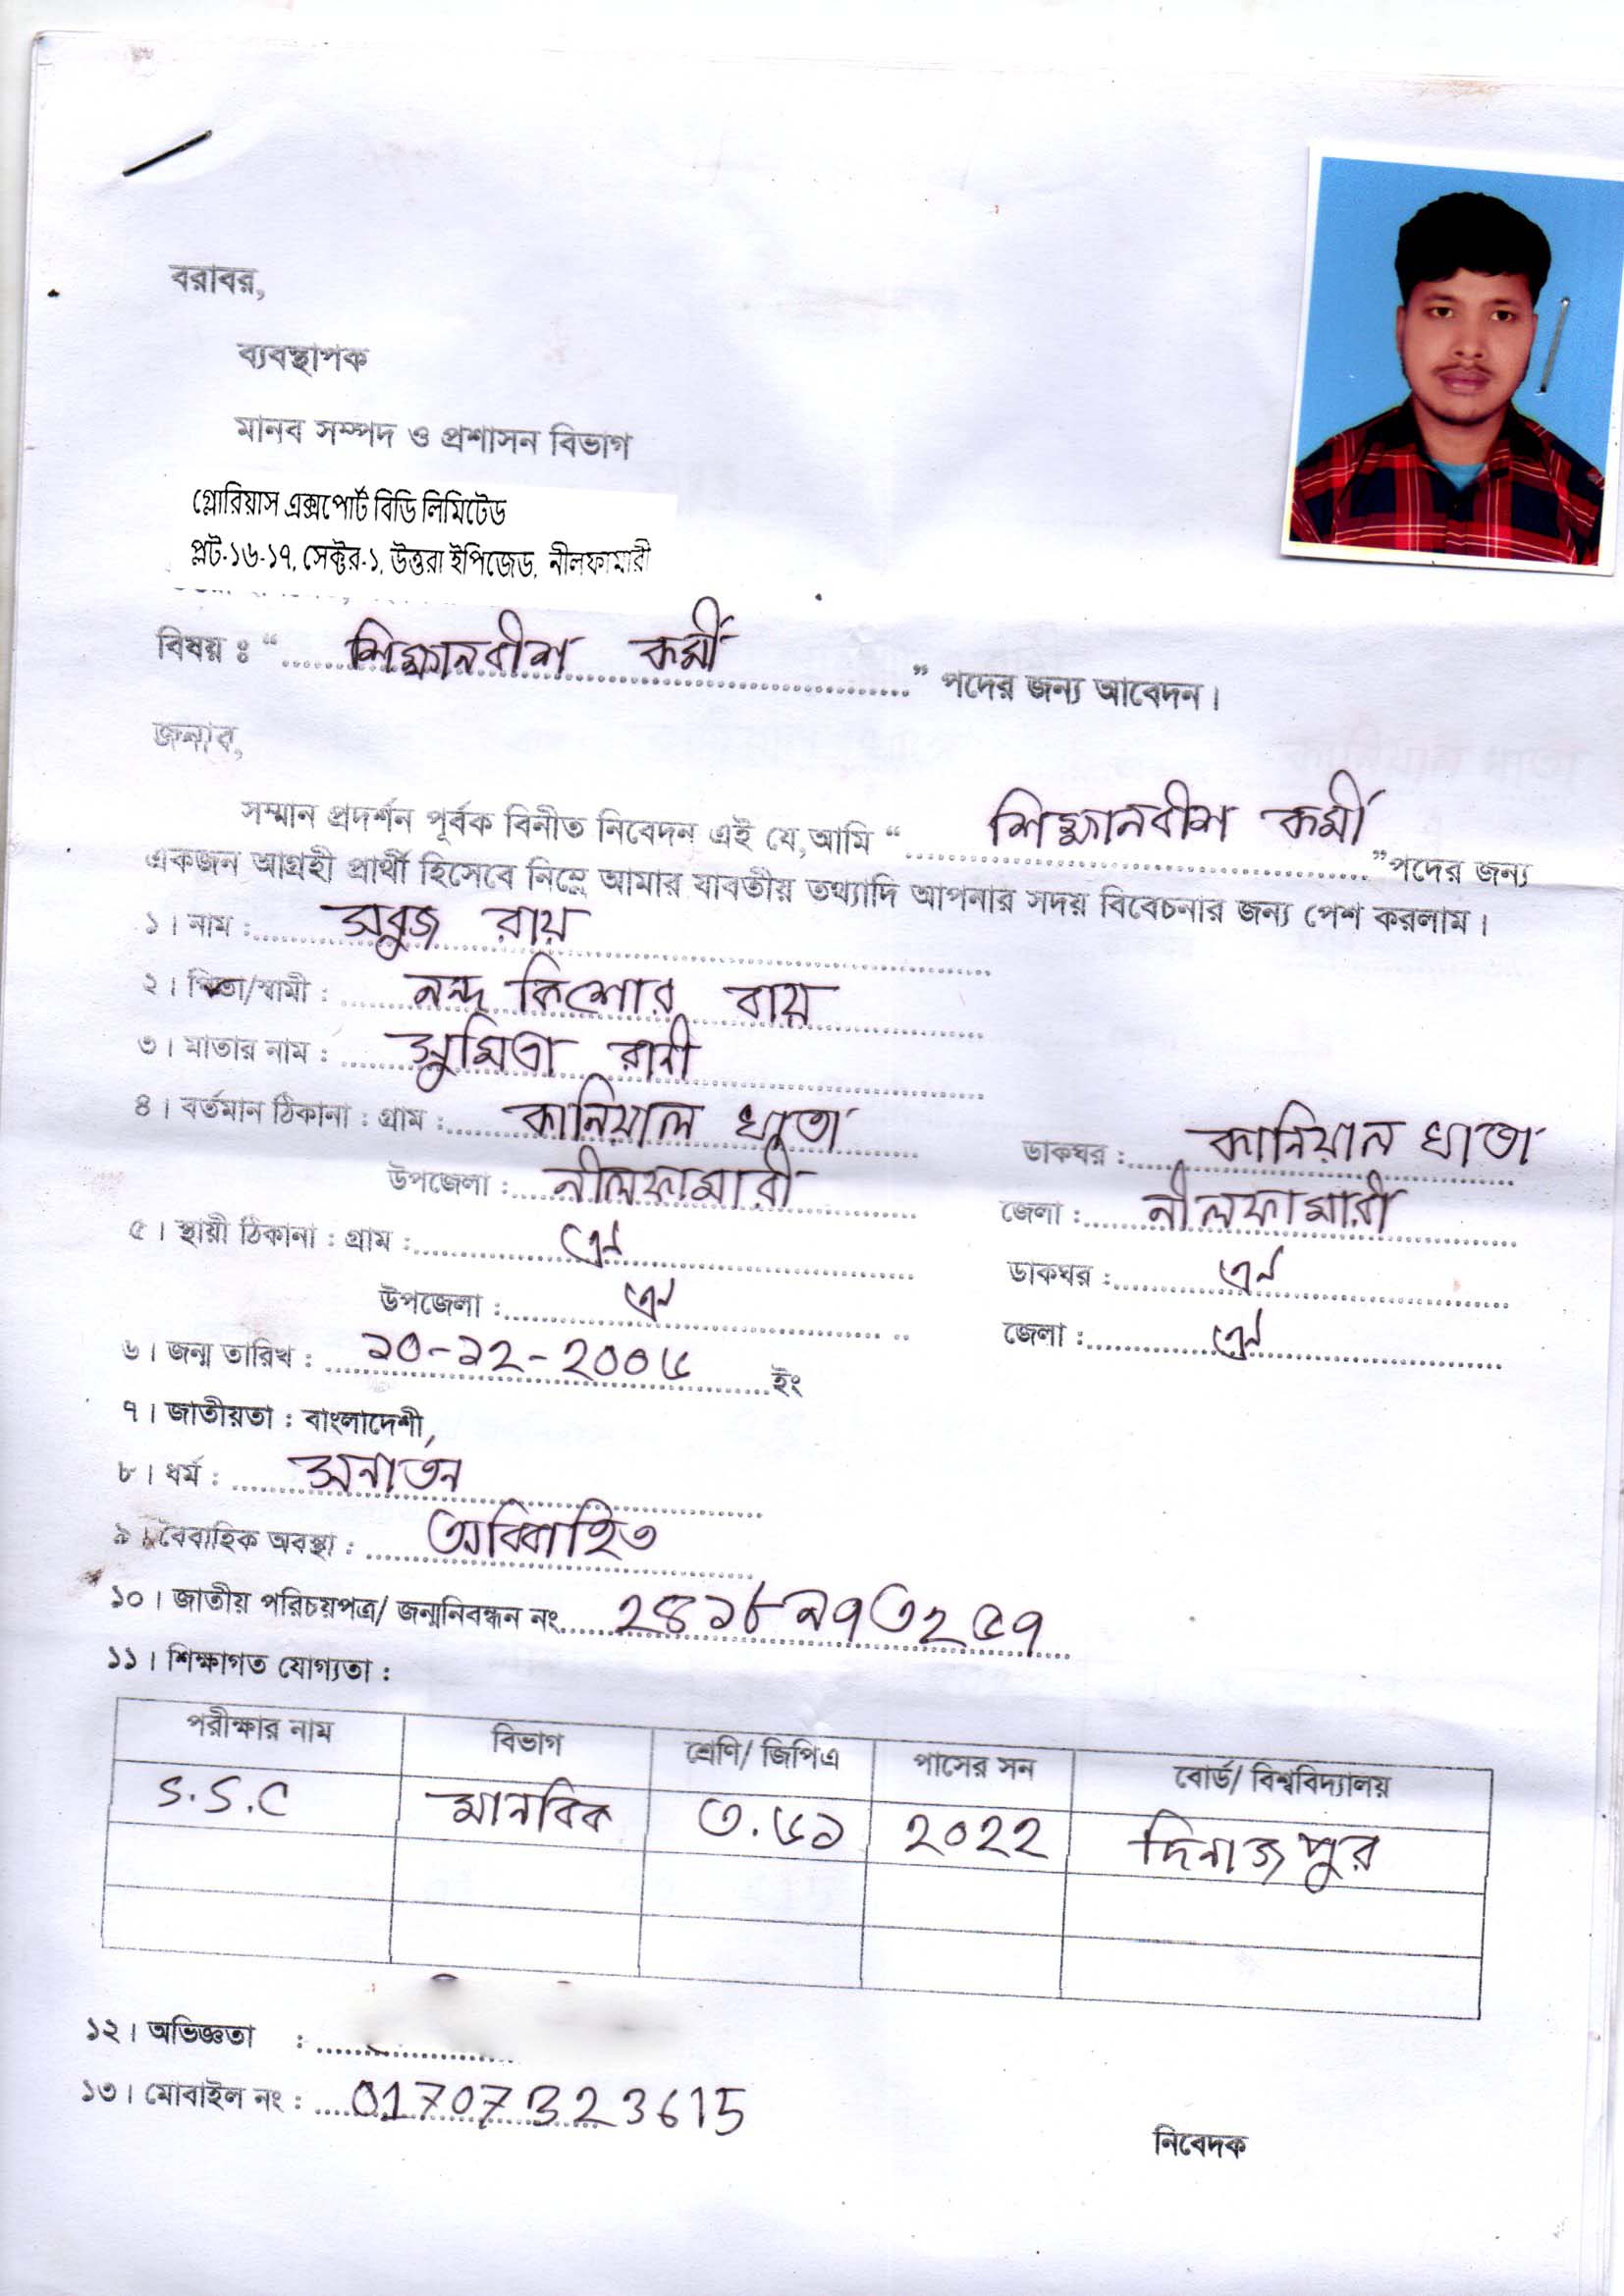 বরাবর,
ব্যবস্থাপক
মানব সম্পদ ও প্রশাসন বিভাগ
গ্লোরিয়াস এক্সপোর্ট বিডি লিমিটেড
প্লট-১৬-১৭, সেক্টর-১, উত্তরা ইপিজেড, নীলফামারী
বিষয় ঃ “ শিক্ষানবীশ কর্মী ” পদের জন্য আবেদন।
জনাব,
সম্মান প্রদর্শন পূর্বক বিনীত নিবেদন এই যে,আমি “ শিক্ষানবীশ কর্মী ”পদের জন্য
একজন আগ্রহী প্রার্থী হিসেবে নিম্নে আমার যাবতীয় তথ্যাদি আপনার সদয় বিবেচনার জন্য পেশ করলাম।
১। নাম : সবুজ রায়
২। পিতা/স্বামী : নন্দ কিশোর রায়
৩। মাতার নাম : সুমিত্রা রানী
৪। বর্তমান ঠিকানা : গ্রাম : কানিয়াল খাতা ডাকঘর : কানিয়াল খাতা
উপজেলা : নীলফামারী জেলা : নীলফামারী
৫। স্থায়ী ঠিকানা : গ্রাম : ডাকঘর :
উপজেলা : জেলা :
৬। জন্ম তারিখ : ১০-১২-২০০৬ ইং
৭। জাতীয়তা : বাংলাদেশী,
৮। ধর্ম : সনাতন
৯। বৈবাহিক অবস্থা : অবিবাহিত
১০। জাতীয় পরিচয়পত্র/ জন্মনিবন্ধন নং ২৪১৮৯৭৩২৫৭
১১। শিক্ষাগত যোগ্যতা :
পরীক্ষার নাম বিভাগ শ্রেণি/ জিপিএ পাসের সন বোর্ড/ বিশ্ববিদ্যালয়
S.S.C মানবিক ৩.৬১ ২০২২ দিনাজপুর
১২। অভিজ্ঞতা :
১৩। মোবাইল নং : 01707323615
নিবেদক